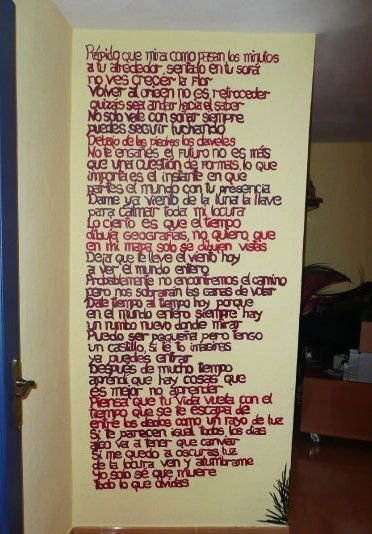 Rápido que mira como pasan los minutos
a tu alrededor, sentado en tu sofá
no ves crecer la Flor
Volver al origen no es retroceder
quizás sea andar hacia el saber
No solo vale con soñar siempre
puedes seguir luchando
Debajo de las piedras los claveles
No te engañes el futuro no es más
que una cuestión de formas, lo que
importa es el instante en que
partes el mundo con tu presencia
Dame ya viento de la luna la llave
para calmar toda mi locura
Lo cierto es que el tiempo
dibuja geografías, no quiero que
en mi mapa solo se dibujen visas
Deja que te lleve el viento hoy
a ver el mundo entero
Probablemente no encontremos el camino
pero nos sobrarán las ganas de volar
Date tiempo al tiempo hoy porque
en el mundo entero siempre hay
un rumbo nuevo donde mirar
Puedo ser pequeña pero tengo
un castillo, si te lo imaginas
ya puedes entrar
Después de mucho tiempo
aprendí que hay cosas que
es mejor no aprender
Piensa que tu Vida vuela con el
tiempo que se te escapa de
entre los dedos como un rayo de luz
Si te parecen igual todos los días
algo va a tener que canviar
Si me quedo a oscuras, luz
de la locura ven y alúmbrame
Yo solo sé que muere
Todo lo que olvidas